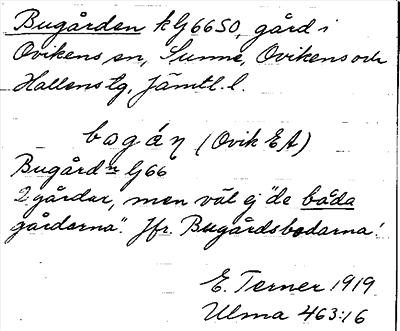 Bugården kG66SO, gård i
Ovikens sn, Sunne, Ovikens och
Hallens tg, Jämtl. l.
bagáɳ (Ovik EA)
Bugård-n G66
2 gårdar, men väl ej "de båda
gårdarna". Jfr. Bugårdsbodarna!
E. Terner 1919
Ulma 463:16